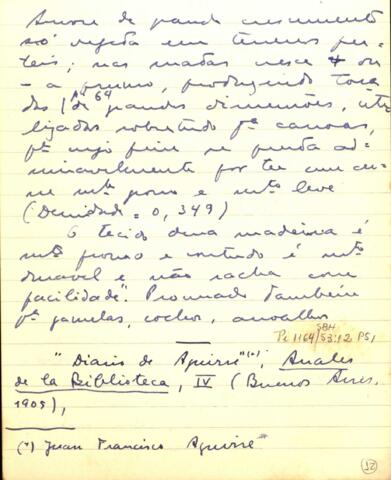 Árvore de grande crescimento
só vegeta em terrenos fer-
teis; nas matas nesce + ou
- a prumo, produzindo tora
das pde 64 grandes dimensões, uti
lizadas sobretudo pª canoas,
pª cujo fim se presta ad-
miravelmente por ter um cer-
ne mtº poroso e mtº leve
(Densidade = 0,349)
O tecido dessa madeira é
mtº poroso e contudo é mtº
duravel e não racha com
facilidade". Procurado tambem
pª gamelas, cochos, assoalhos
SBH
Pi 1164/53:12 P51
"Diario de Aguirre"(*), Anales
de la Biblioteca, IV (Buenos Aires,
1905),
(*) Juan Francisco Aguirre
(52)